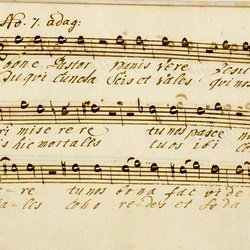 No. 7. adag:
bone Pastor panis vere Jesu
Tu qui cuncta Scis et vales qui nos
miserere tu nos pasce
hic mortales tuos ibi
re tu nos bona fac vide
ales coho redes et soda